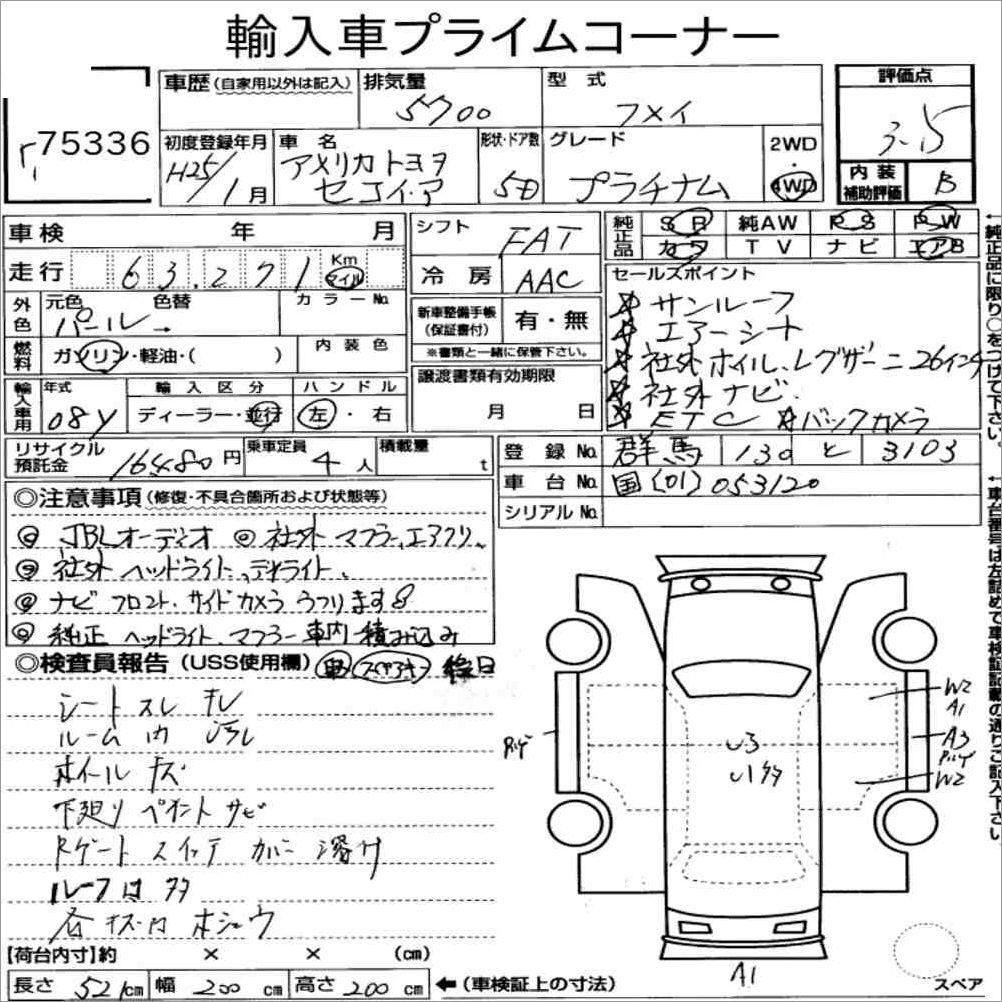 輸入車プライムコーナー
75336
車歴 (自家用以外は記入) 排気量 5700 型式 フメイ
評価点 3.5
初度登録年月 H25/1月 車名 アメリカトヨタ セコイ・ア 形状・ドア数 5D グレード プラチナム 2WD・4WD
内装補助評価 B
車検 年 月
シフト FAT
純正品 SR 純AW PS PW
カワ TV ナビ エアB
走行 63,271 Km マイル
冷房 AAC
セールスポイント
外色 元色 パール 色替 → カラーNo.
新車整備手帳(保証書付) 有・無
※書類と一緒に保管下さい。
サンルーフ
エアーシート
社外ホイル、レグザーニ26インチ
社外ナビ
ETC バックカメラ
燃料 ガソリン・軽油・( ) 内装色
輸入車用 年式 08y 輸入区分 ディーラー・並行 ハンドル 左・右
譲渡書類有効期限
月 日
リサイクル預託金 16480円 乗車定員 4人 積載量 t
登録No. 群馬 130 と 3103
車台No. 国(01)053120
シリアルNo.
◎注意事項(修復・不具合箇所および状態等)
◎ JBLオーディオ ◎ 社外 マフラー、エアクリ、
◎ 社外 ヘッドライト、デイライト、
◎ ナビ フロント、サイドカメラ うつります
◎ 純正 ヘッドライト、マフラー 車内積み込み
◎検査員報告(USS使用欄)
シートスレ キレ
ルーム内 汚レ
ホイール キズ
下廻り ペイント サビ
Rゲート スイッチ カバー 溶け
ルーフ
各キズ凹 ホシュウ
W2
A1
A3
W2
U3
U1
A1
【荷台内寸】約 × × (cm)
長さ 521cm 幅 200cm 高さ 200cm ←(車検証上の寸法)
スペア
←純正品に限り○をつけて下さい。
←車台番号は左詰めで車検証記載の通りご記入下さい。